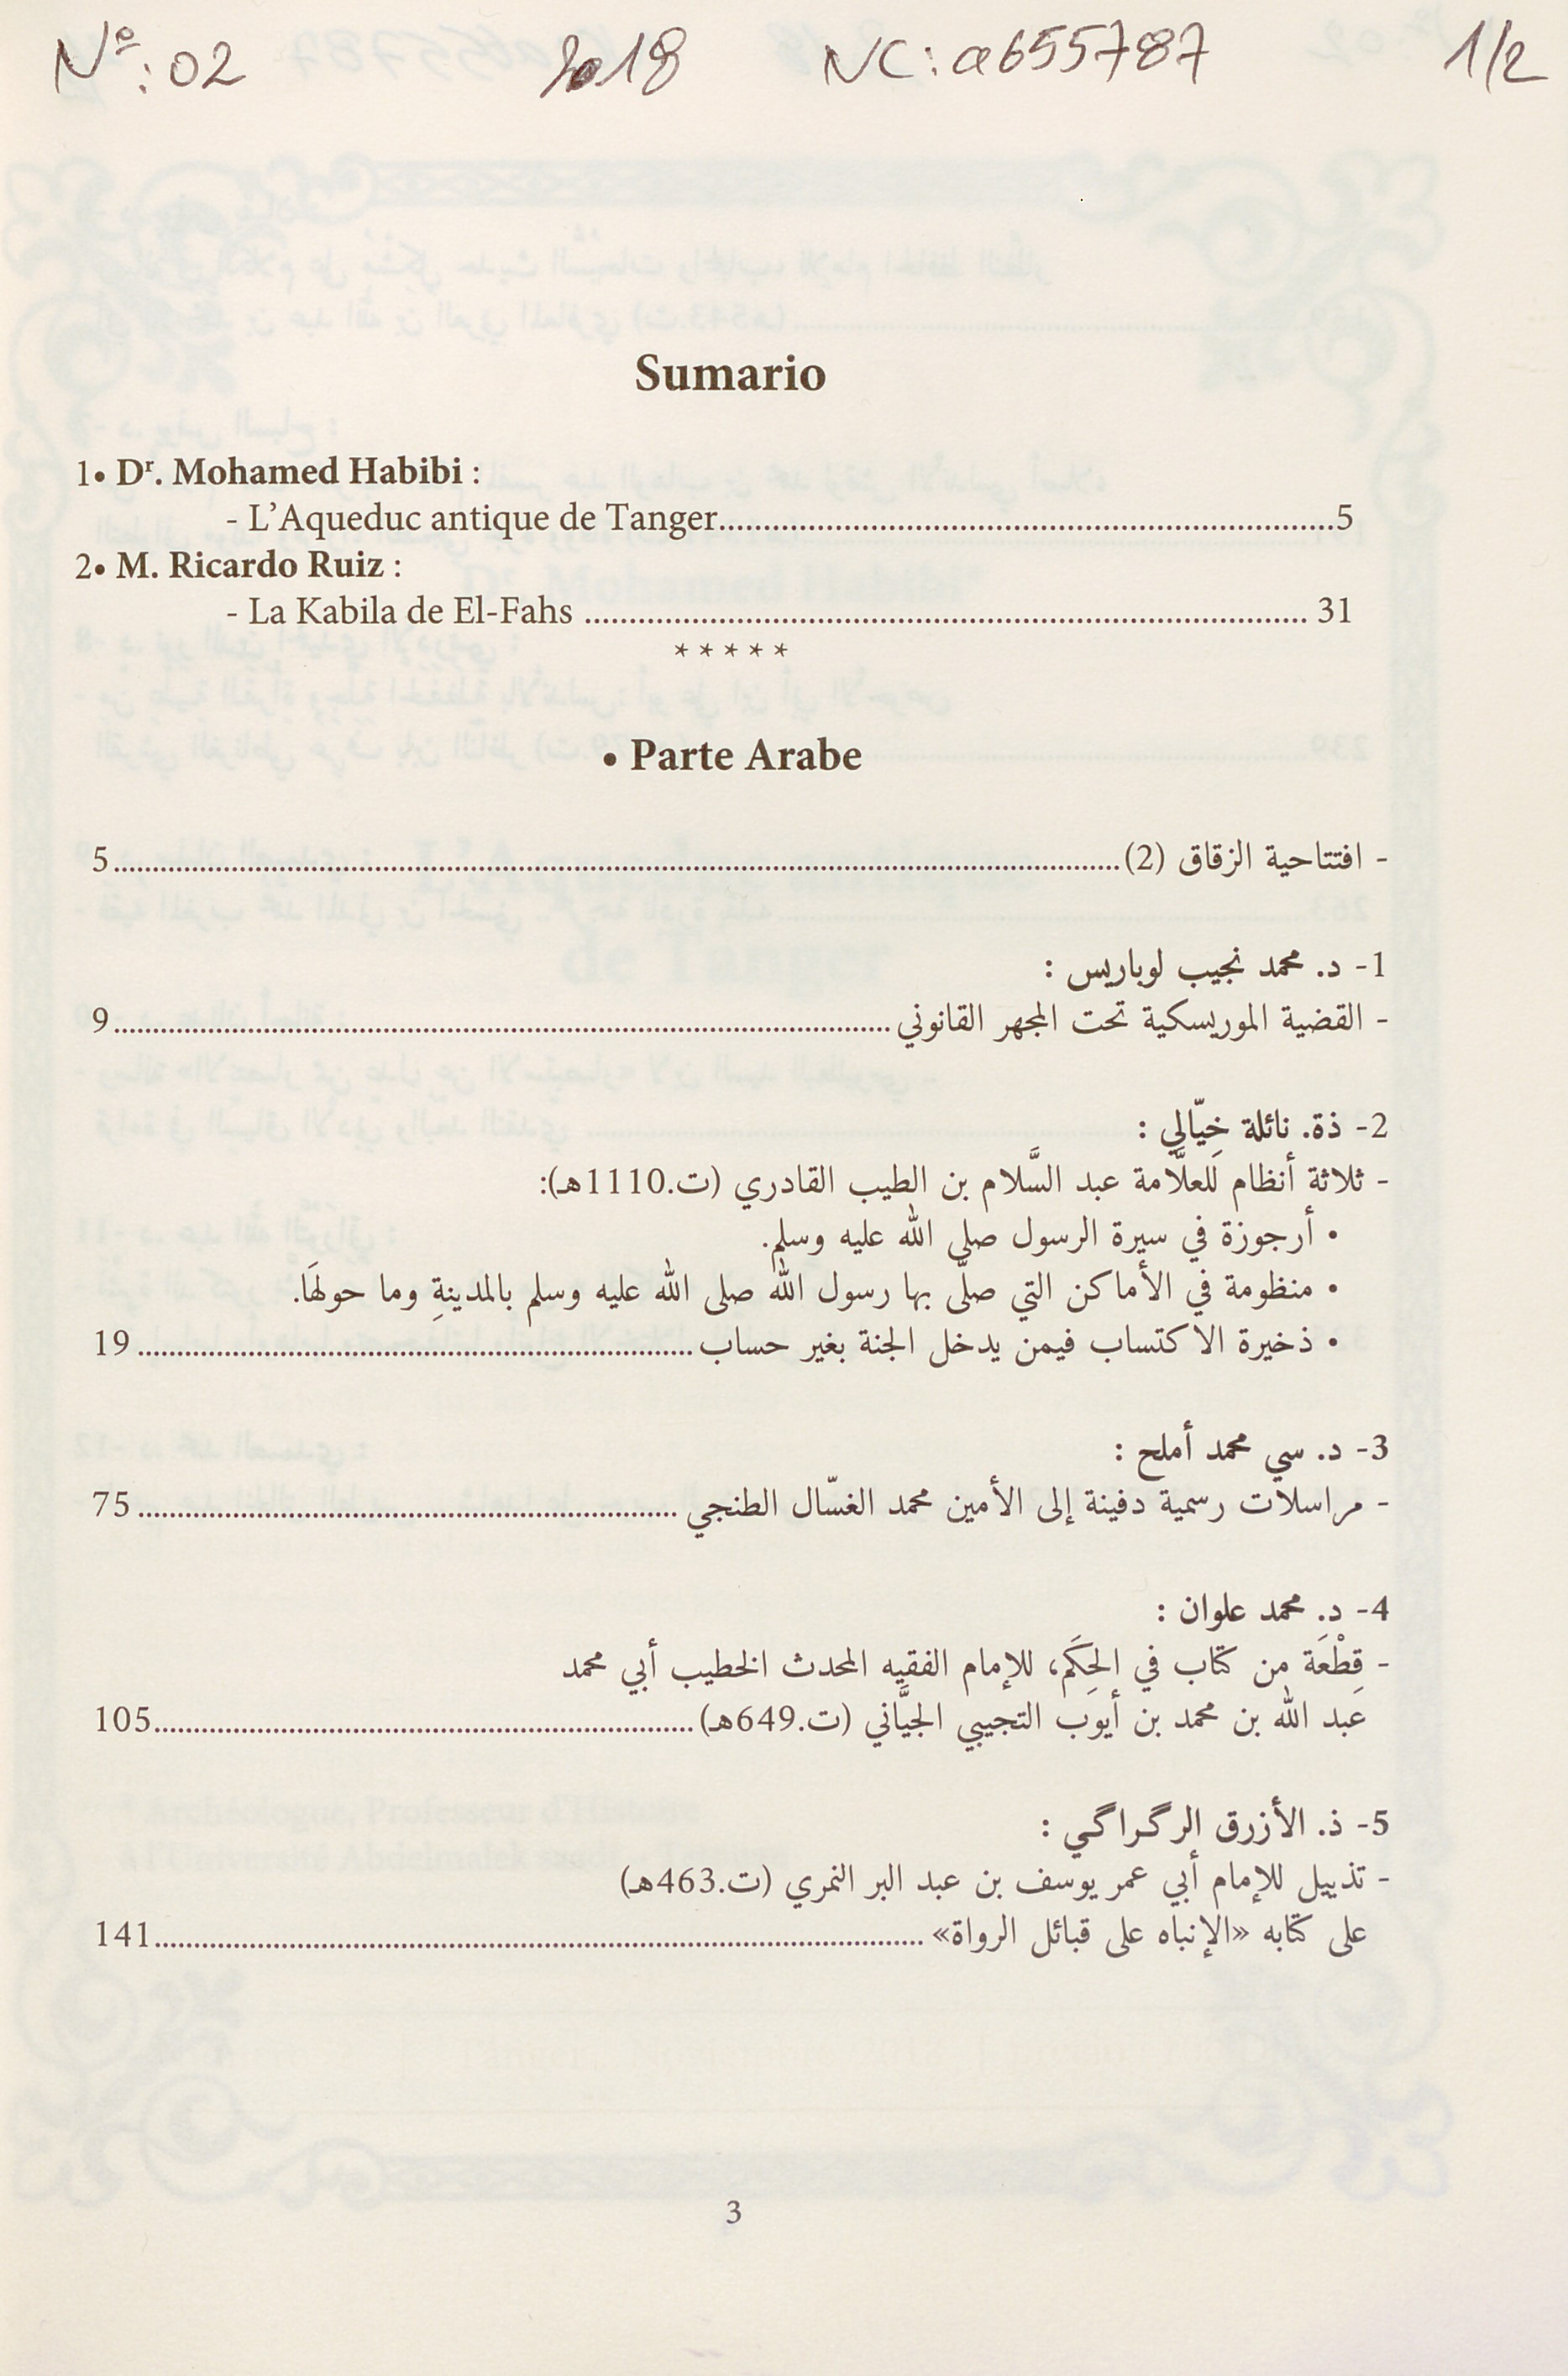 Nº: 02 2018 NC: a655787 1/2
Sumario
1• Dʳ. Mohamed Habibi :
- L'Aqueduc antique de Tanger......5
2• M. Ricardo Ruiz :
- La Kabila de El-Fahs ...... 31
* * * * *
• Parte Arabe
- افتتاحية الزقاق (2)......5
1- د. محمد نجيب لوباريس :
- القضية الموريسكية تحت المجهر القانوني......9
2- ذة. نائلة خِيّالِي :
- ثلاثة أنظام للعلاَّمة عبد السَّلام بن الطيب القادري (ت.1110هـ):
• أرجوزة في سيرة الرسول صلى الله عليه وسلم.
• منظومة في الأماكن التي صلَّى بها رسول الله صلى الله عليه وسلم بالمدينةِ وما حولهَا.
• ذخيرة الاكتساب فيمن يدخل الجنة بغير حساب......19
3- د. سي محمد أملح :
- مراسلات رسمية دفينة إلى الأمين محمد الغسّال الطنجي......75
4- د. محمد علوان :
- قِطْعَة من كتاب في الحِكَم، للإمام الفقيه المحدث الخطيب أبي محمد
عبد الله بن محمد بن أيوب التجيبي الجيَّاني (ت.649هـ)......105
5- ذ. الأزرق الرگراگي :
- تذييل للإمام أبي عمر يوسف بن عبد البر النمري (ت.463هـ)
على كتابه «الإنباه على قبائل الرواة»......141
3